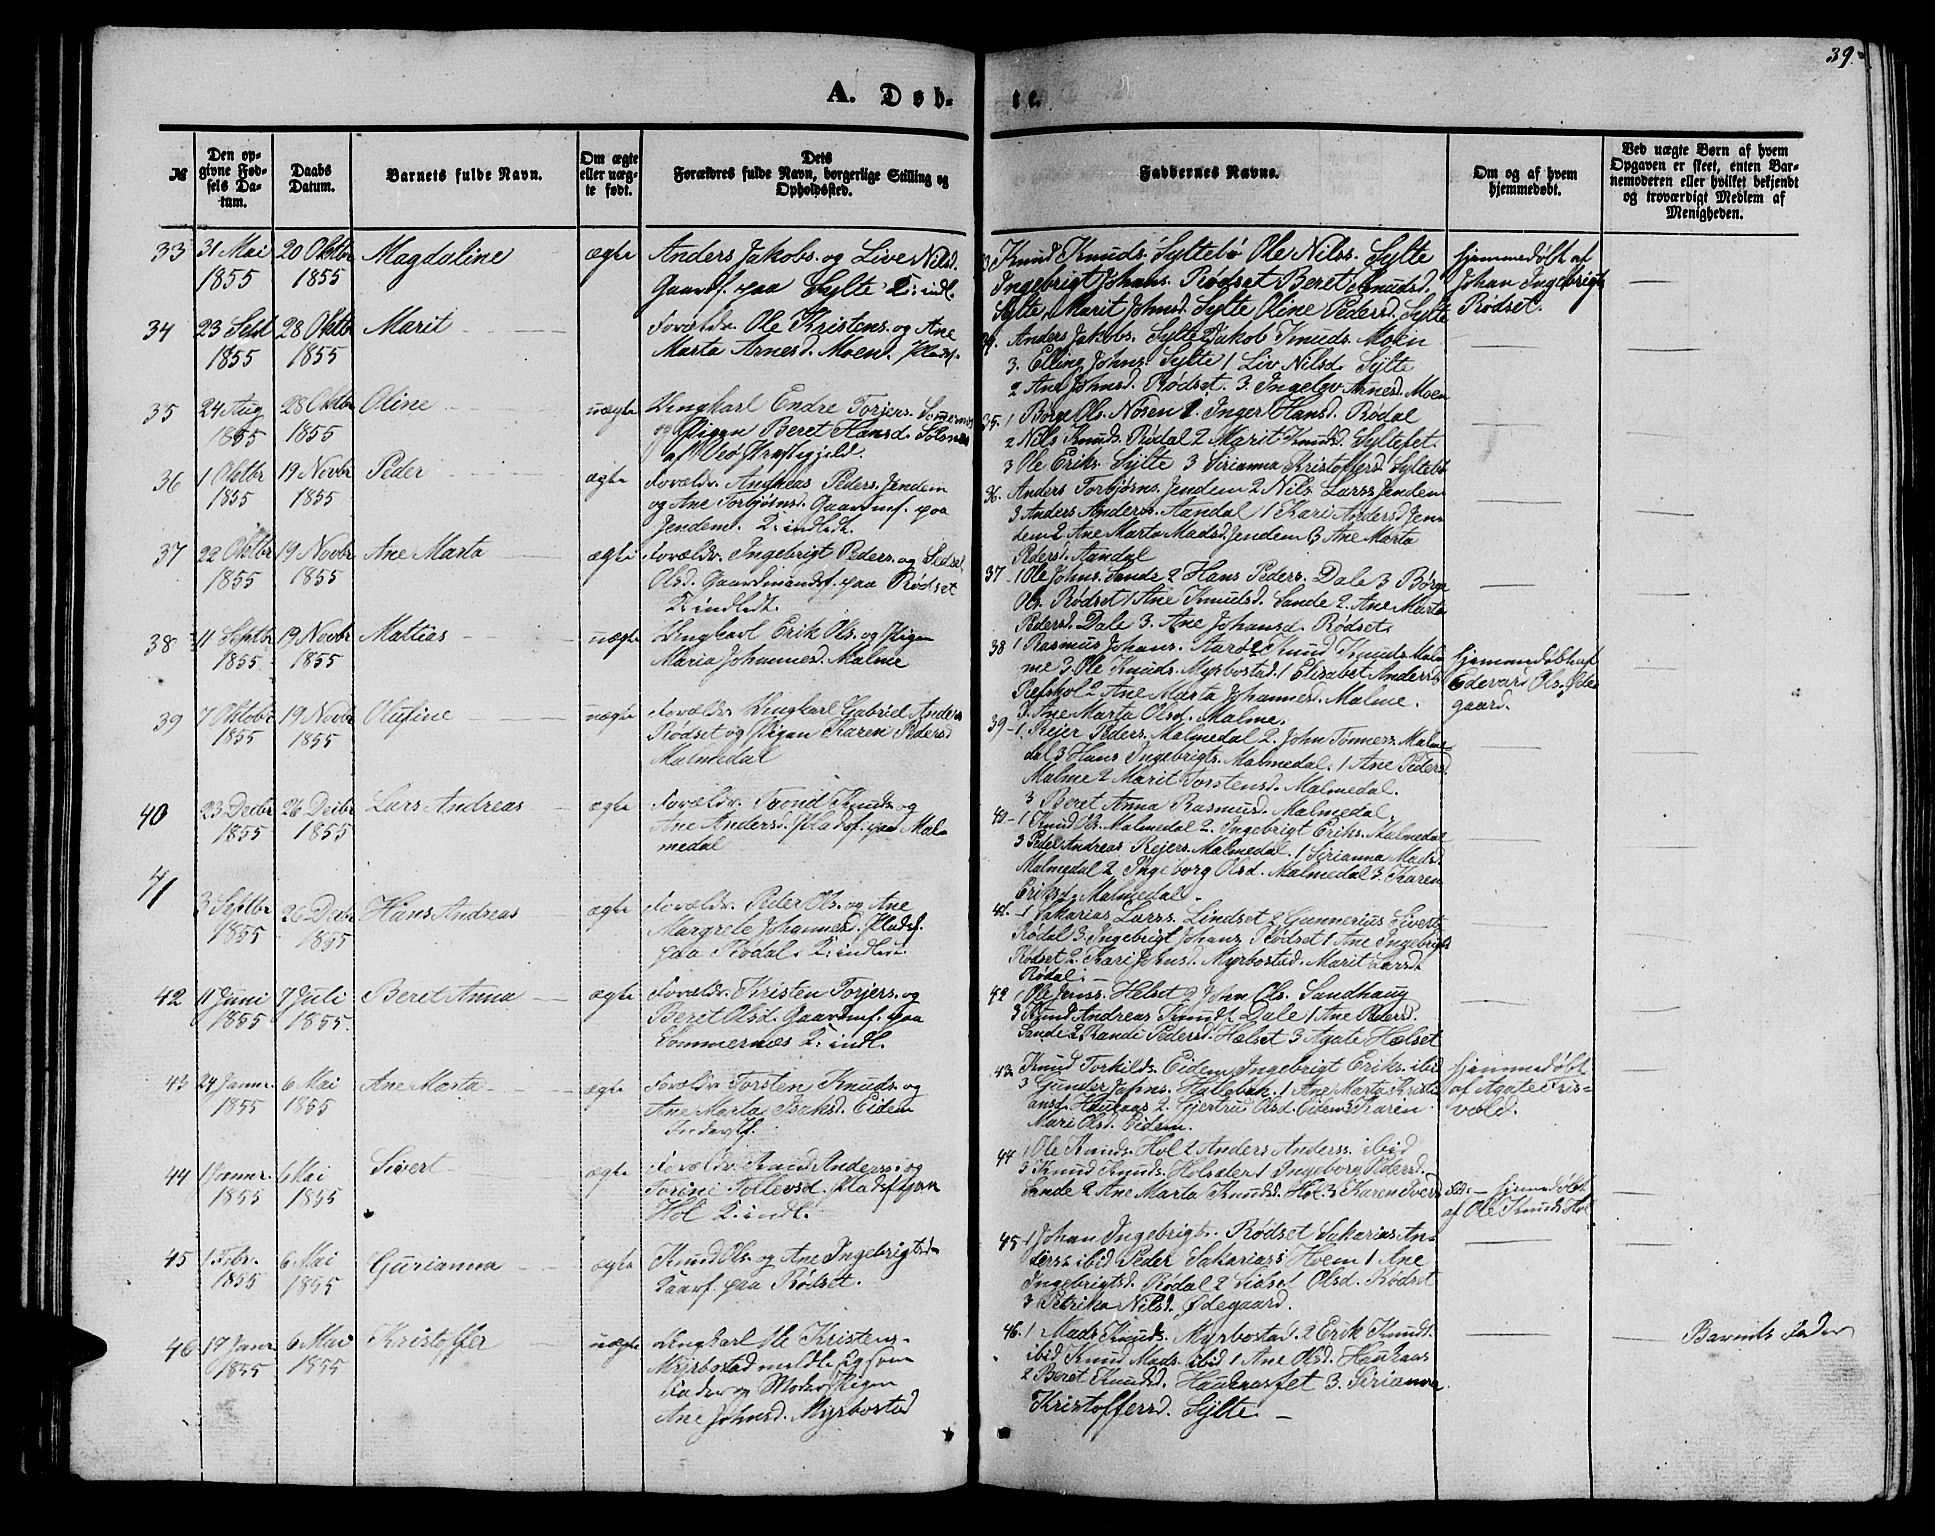 39.
A. Døb-
te.
№
Den op-
givne Fød-
sels Da-
tum.
Daabs
Datum.
Barnets fulde Navn.
Om ægte
eller uæg-
te født.
Dets
Forældres fulde Navn, borgerlige Stilling og
Opholdssted.
Faddernes Navne.
Om og af hvem
hjemmedøbt.
Ved uægte Børn af hvem
Opgaven er skeet, enten Bar-
nemoderen eller hvilket bekjendt
og troværdigt Medlem af
Menigheden.
33 31 Mai 20 Oktbr Magdaline ægte Anders Jakobs. og Live Nilsd.
1855 1855 Gaardf. paa Sylte 2: indl.
Knud Knuds. Syltebø Ole Nilss. Sylte
Ingebrigt Johans. Rødset Beret Knudsd.
Sylte, Marit Johnsd. Sylte Oline Pedersd. Sylte
Hjemmedøbt af
Johan Ingebrigts
Rødset.
34 23 Sept 28 Oktbr Marit Forældr. Ole Kristens. og Ane
1855 1855 Marta Arnesd. Moen. Pladsf.
34. Anders Jakobs. Sylte 2 Jakob Knuds. Moen
3. Elling Johns. Sylte 1 Liv Nilsd. Sylte
2 Ane Johnsd. Rødset. 3. Ingelev Arnesd. Moen
35 24 Aug 28 Oktbr Oline uægte Ungkarl Endre Torjers. Sommernes
1855 1855 og Pigen Beret Hansd. Solsnes
af Veø Præstegjeld.
35. 1 Børge Ols. Nosen 1. Inger Hansd. Rødal
2 Nils Knuds. Rødal 2 Marit Knudsd. Syltefet.
3 Ole Eriks. Sylte 3 Sirianna Kristoffersd. Syltebø
36 1 Oktbr 19 Novbr Peder ægte Forældr. Andreas Peders. Jendem
1855 1855 og Ane Torbjørnsd. Gaardmf. paa
Jendem. 2: indledt.
36. Anders Torbjørns. Jendem 2 Nils Larss Jendem
3 Anders Anderss. Aandal 1 Kari Andersd Jen-
dem 2. Ane Marta Madsd. Jendem 3 Ane Marta
Pedersd. Aandal
37 22 Oktbr 19 Novbr Ane Marta ægte Forældr. Ingebrigt Peders. og Sidsel
1855 1855 Olsd. Gaardmandsf. paa Rødset
2: indledt.
37 - 1 Ole Johns. Sande 2 Hans Peders. Dale 3 Børge
Ols. Rødset 1 Ane Knudsd. Sande 2. Ane Marta
Pedersd. Dale 3. Ane Johansd. Rødset.
38 11 Septbr 19 Novbr Mattias uægte Ungkarl Erik Ols. og Pigen
1855 1855 Maria Johannesd. Malme
38 1 Rasmus Johans. Aarø 2 Knud Knuds. Mal-
me 3 Ole Knuds. Myrbostad. 1 Elisabet Andersd.
Refshol 2 Ane Marta Johannesd. Malme.
3. Ane Marta Olsd. Malme.
Hjemmedøbt af
Edevard Ols. Øde-
gaard.
39 7 Oktobr 19 Novbr Olufine uægte Forældr. Ungkarl Gabriel Anders
1855 1855 Rødset og Pigen Karen Pedersd
Malmedal
39 - 1. Rejer Peders. Malmedal 2. John Tønnes. Malme-
dal 3 Hans Ingebrigts. Malmedal. 1 Ane Pedersd.
Malme 2 Marit Torstensd. Malmedal.
3 Beret Anna Rasmusd. Malmedal
40 23 Decbr 26 Decbr Lars Andreas ægte Forældr. Trond Knuds. og
1855 1855 Ane Andersd. Pladsf. paa Mal-
medal
40 - 1 Knud Ols. Malmedal 2. Ingebrigt Eriks. Malmedal
3 Peder Andreas Rejers. Malmedal. 1 Sirianna Madsd.
Malmedal 2 Ingeborg Olsd. Malmedal 3. Karen
Eriksd. Malmedal.
41 3 Septbr 26 Decbr Hans Andreas ægte Forældr. Peder Ols. og Ane
1855 1855 Margrete Johannesd. Pladsf.
paa Rødal. 2: indledt.
41. - 1 Sakarias Larss. Lindset 2 Gunnerius Siverts.
Rødal 3. Ingebrigt Johans. Rødset 1 Ane Ingebrigts
Rødset 2. Kari Johnsd. Myrbostad. Marit Larsd.
Rødal. -
42 11 Juni 7 Juli Beret Anna ægte Forældr. Kristen Torjers. og
1855 1855. Beret Olsd. Gaardmf. paa
Sommernæs 2: indl.
42 1 Ole Jenss. Helset 2 John Ols. Sandhaug
3 Knud Andreas Knuds. Dale 1 Ane Pedersd.
Sande 2 Randi Pedersd. Helset 3 Agate Helset
43 24 Janur. 6 Mai Ane Marta ægte Forældr. Torsten Knuds. og
1855 1855 Ane Marta Isaksd. Eidem
Inderstf.
43 Knud Torkilds. Eidem Ingebrigt Eriks. ibid
3 Gunder Johns. Hollebak. 1 Ane Marta Kristi-
ansd. Haukaas 2. Gjertrud Olsd. Eidem 3 Karen
Mari Olsd. Eidem.
Hjemmedøbt
af Agate Tris-
vold.
44 1 Janur. 6 Mai Sivert ægte Forældr. Knud Anderss. og
1855 1855 Torine Tollevsd. Pladsf. paa
Hol 2: indl.
44 1 Ole Knuds. Hol 2 Anders Anderss. ibid
3 Knud Knuds. Holsæter 1 Ingeborg Pedersd.
Sande 2 Ane Marta Knudsd. Hol 3 Karen Ivers
sd. - Hjemmedøbt
af Ole Knuds Hol
45 1 Febr. 6 Mai Gurianna ægte Knud Ols. og Ane Ingebrigtsd.
1855 1855 Gaarf. paa Rødset.
45 1 Johan Ingebrigts. Rødset Sakarias An-
derss ibid Peder Sakariass Hoem 1 Ane
Ingebrigtsd. Rødal 2 Sidsel Olsd. Rødset
3 Petrika Nilsd. Ødegaard.
46 17 Janr 6 Mai Kristoffer uægte Ungkarl Ole Kristens.
1855 1855 Myrbostad meldte sig som
Fader og Moder Pigen
Ane Johnsd. Myrbostad
46. 1 Mads Knuds. Myrbostad. 2 Erik Knuds.
ibid Knud Mads. ibid 1 Ane Olsd. Haukaas
2 Beret Knudsd. Haukaasfet 3. Sirianna
Kristoffersd. Sylte. -
Barnets Fader